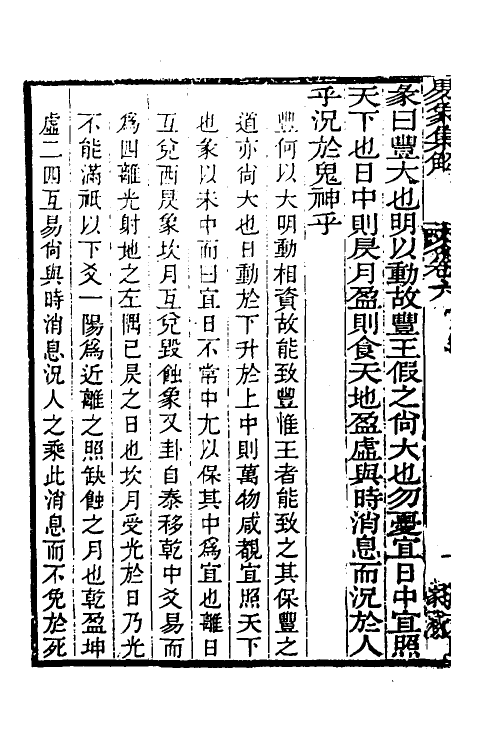 彖曰豐大也明以動故豐王假之尙大也勿憂宜日中宜照
天下也日中則昃月盈則食天地盈虛與時消息而況於人
乎況於鬼神乎
豐何以大明動相資故能致豐惟王者能致之其保豐之
道亦尙大也日動於下升於上中則萬物咸覩宜照天下
也象以未中而曰宜日不常中尢以保其中爲宜也離日
互兌西昃象坎月互兌毀蝕象又卦自泰移乾中爻易而
爲四離光射地之左隅已昃之日也坎月受光於日乃光
不能滿祗以下爻一陽爲近離之照缺蝕之月也乾盈坤
虛二四互易尙與時消息況人之乘此消息而不免於死